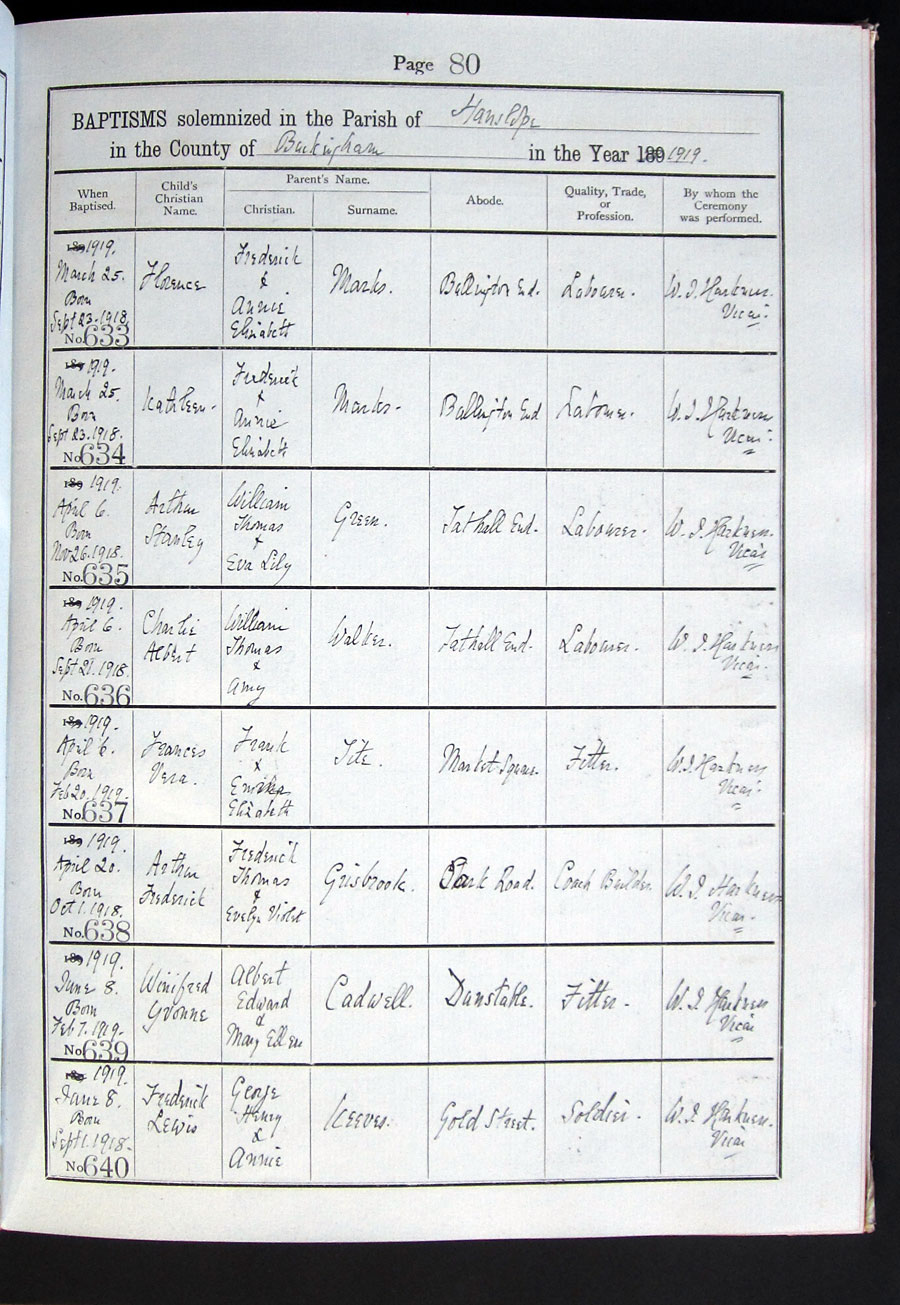 Page 80
BAPTISMS solemnized in the Parish of Hanslope
in the County of Buckingham in the Year 189 1919.
When Baptised.
Child's Christian Name.
Parent's Name.
Christian.
Surname.
Abode.
Quality, Trade, or Profession.
By whom the Ceremony was performed.
189 1919.
March 25.
Born
Sept 23. 1918.
No. 633
Florence
Frederick
&
Annie
Elizabeth
Marks.
Bullington End.
Labourer.
W. J. Harkness.
Vicar.
189 1919.
March 25.
Born
Sept 23. 1918.
No. 634
Kathleen.
Frederick
&
Annie
Elizabeth
Marks.
Bullington End
Labourer.
W. J. Harkness
Vicar.
189 1919.
April 6.
Born
Nov 26. 1918.
No. 635
Arthur
Stanley
William
Thomas
&
Eva Lily
Green.
Tathall End.
Labourer.
W. J. Harkness.
Vicar
189 1919.
April 6.
Born
Sept 21. 1918.
No. 636
Charlie
Albert
William
Thomas
&
Amy
Walker.
Tathall End.
Labourer.
W. J. Harkness
Vicar.
189 1919.
April 6.
Born
Feb 20. 1919.
No. 637
Frances
Vera.
Frank
&
Elizabeth
Tite.
Market Square.
Fitter.
W. J. Harkness
Vicar.
189 1919.
April 20.
Born
Oct 1. 1918.
No. 638
Arthur
Frederick
Frederick
Thomas
&
Evelyn Violet
Grisbrook.
Park Road.
Coach Builder.
W. J. Harkness
Vicar.
189 1919.
June 8.
Born
Feb 7. 1919.
No. 639
Winifred
Yvonne
Albert
Edward
&
Mary Ellen
Cadwell.
Dunstable.
Fitter.
W. J. Harkness
Vicar
189 1919.
June 8.
Born
Sept 1. 1918.
No. 640
Frederick
Lewis
George
Henry
&
Annie
Reeves.
Gold Street.
Soldier.
W. J. Harkness.
Vicar